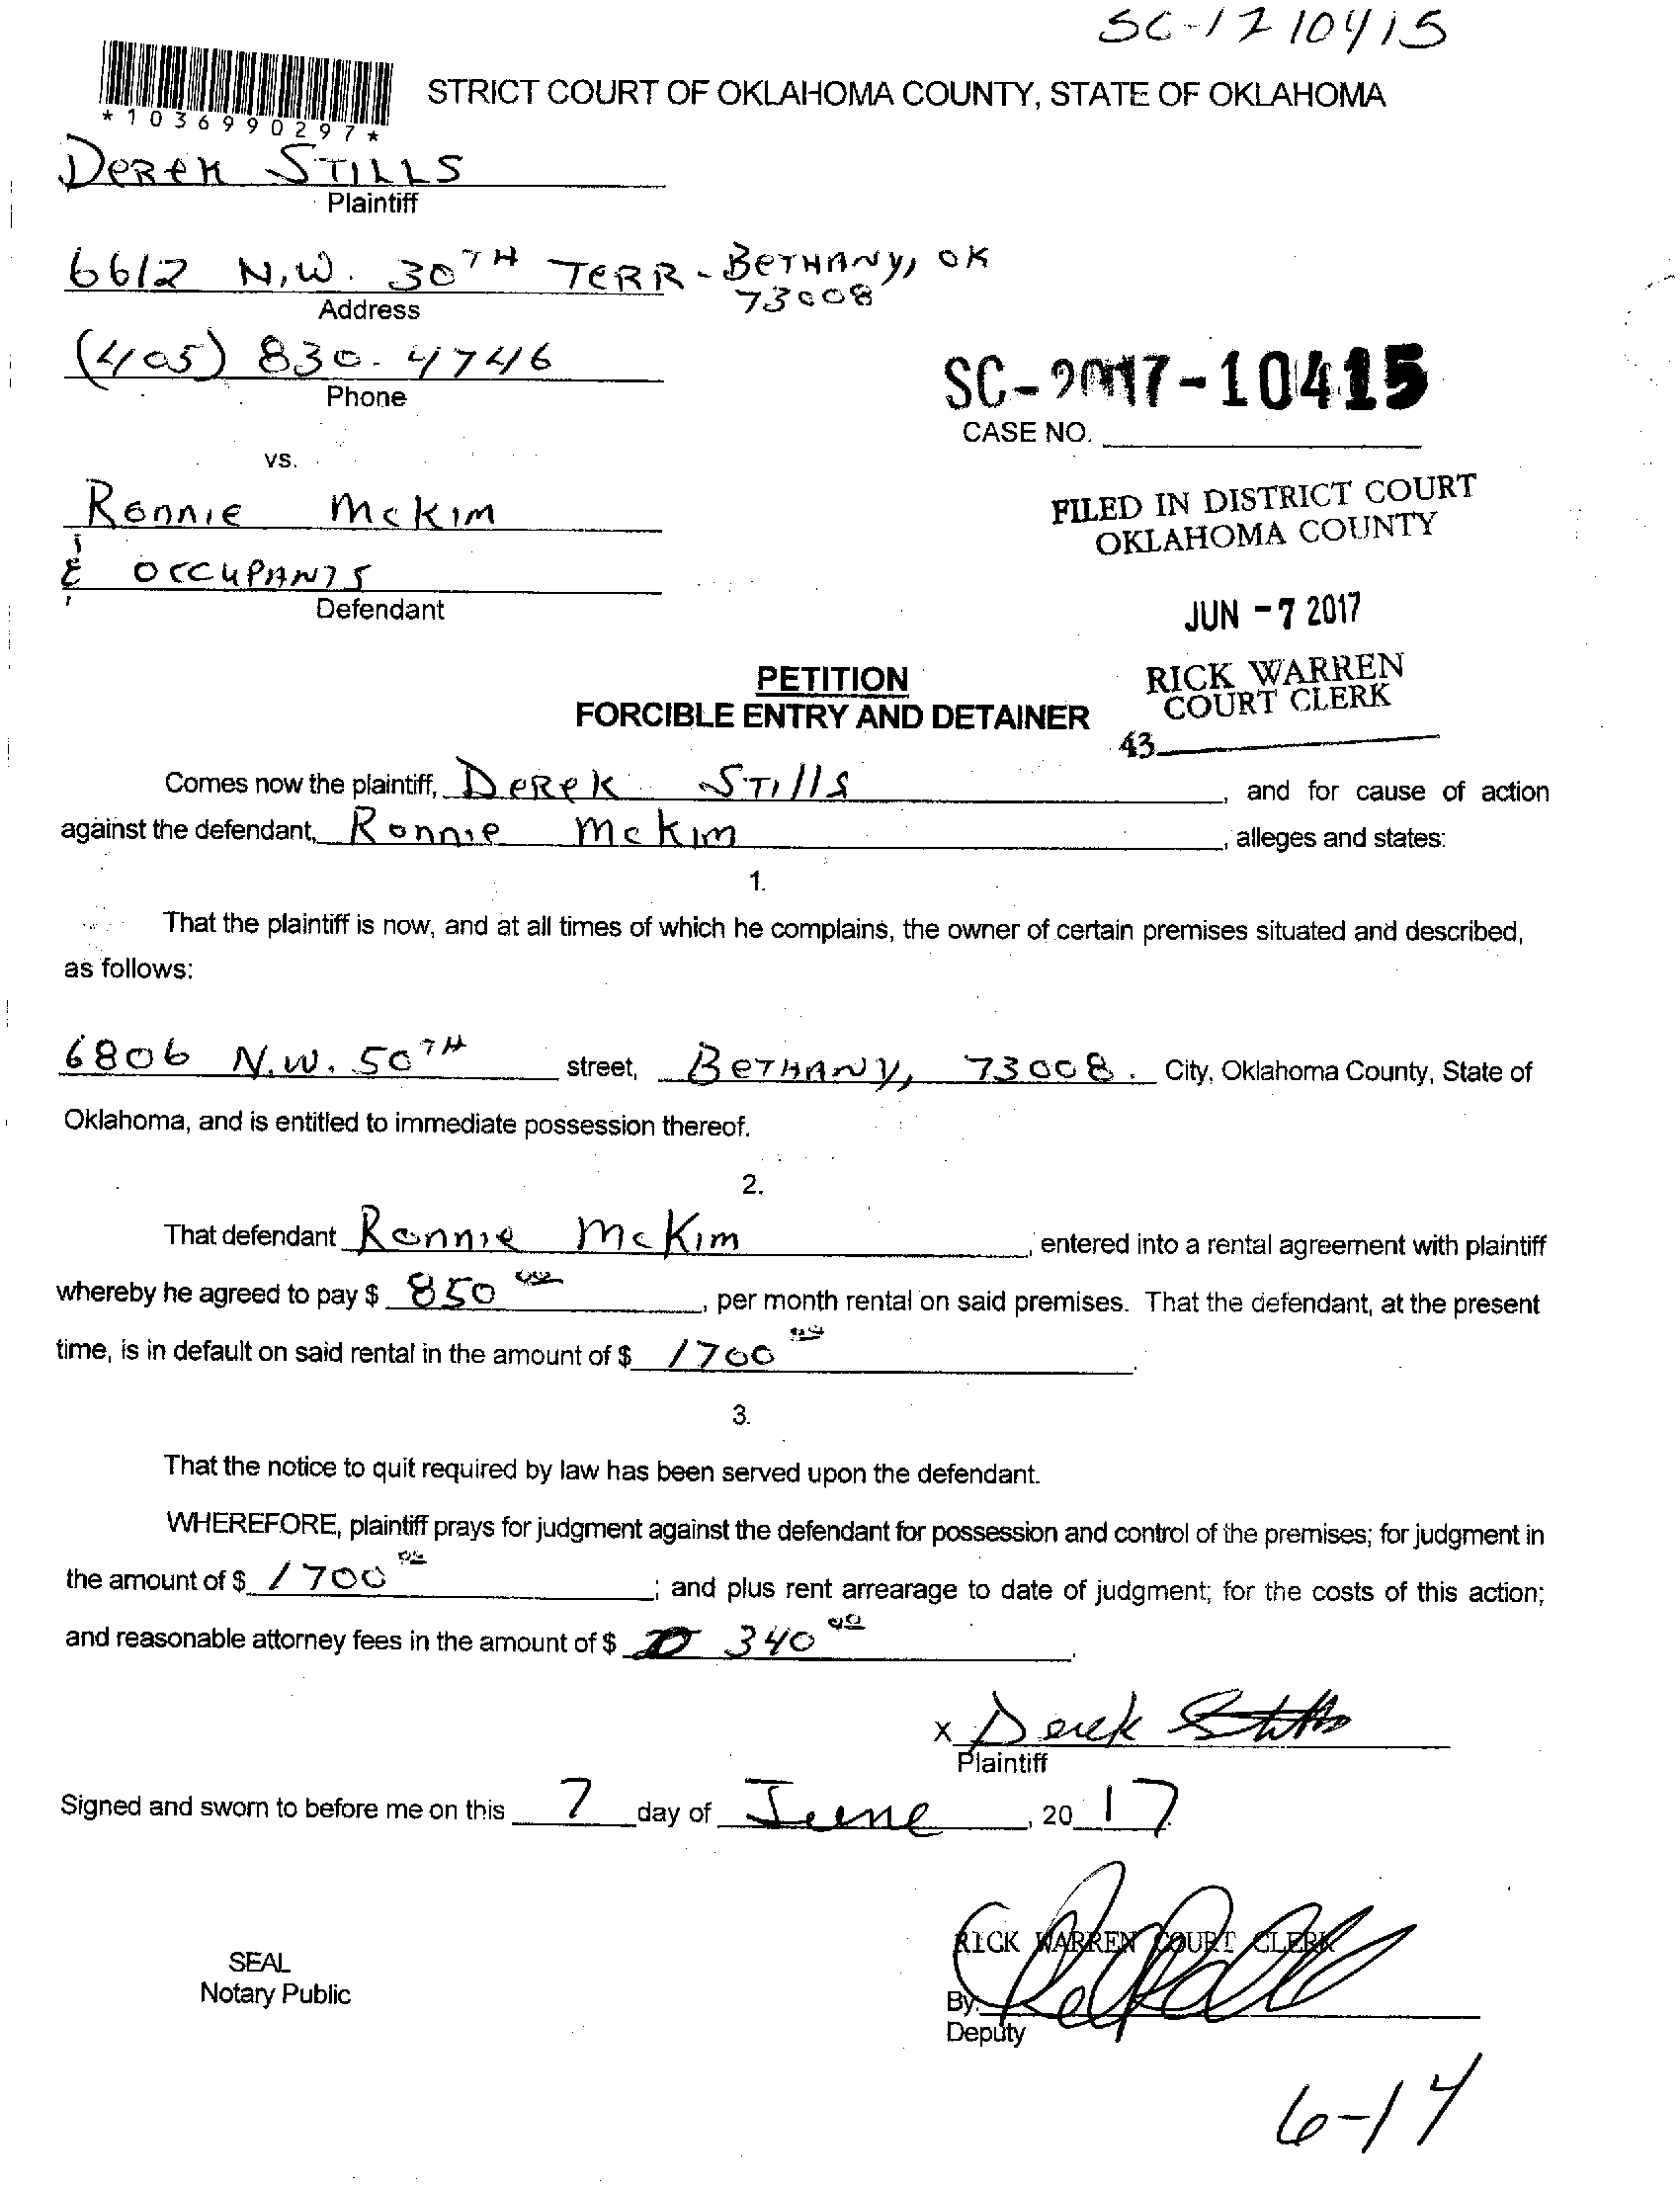 SC-17 10415
*1036990297*
STRICT COURT OF OKLAHOMA COUNTY, STATE OF OKLAHOMA
DEREK STILLS
Plaintiff
6612 N.W. 30TH TERR - BETHANY, OK
73008
Address
(405) 830-4746
Phone
SC-2017-10415
CASE NO.
vs.
Ronnie McKim
FILED IN DISTRICT COURT
OKLAHOMA COUNTY
& OCCUPANTS
Defendant
JUN -7 2017
PETITION
FORCIBLE ENTRY AND DETAINER
RICK WARREN
COURT CLERK
43
Comes now the plaintiff, DEREK STILLS, and for cause of action
against the defendant, Ronnie McKim, alleges and states:
1.
That the plaintiff is now, and at all times of which he complains, the owner of certain premises situated and described,
as follows:
6806 N.W. 50TH street, BETHANY, 73008. City, Oklahoma County, State of
Oklahoma, and is entitled to immediate possession thereof.
2.
That defendant Ronnie McKim, entered into a rental agreement with plaintiff
whereby he agreed to pay $ 850 00, per month rental on said premises. That the defendant, at the present
time, is in default on said rental in the amount of $ 1700 00.
3.
That the notice to quit required by law has been served upon the defendant.
WHEREFORE, plaintiff prays for judgment against the defendant for possession and control of the premises; for judgment in
the amount of $ 1700 00; and plus rent arrearage to date of judgment; for the costs of this action;
and reasonable attorney fees in the amount of $ 340 00.
x Derek Stills
Plaintiff
Signed and sworn to before me on this 7 day of June, 20 17
RICK WARREN COURT CLERK
SEAL
Notary Public
By:
Deputy
6-14